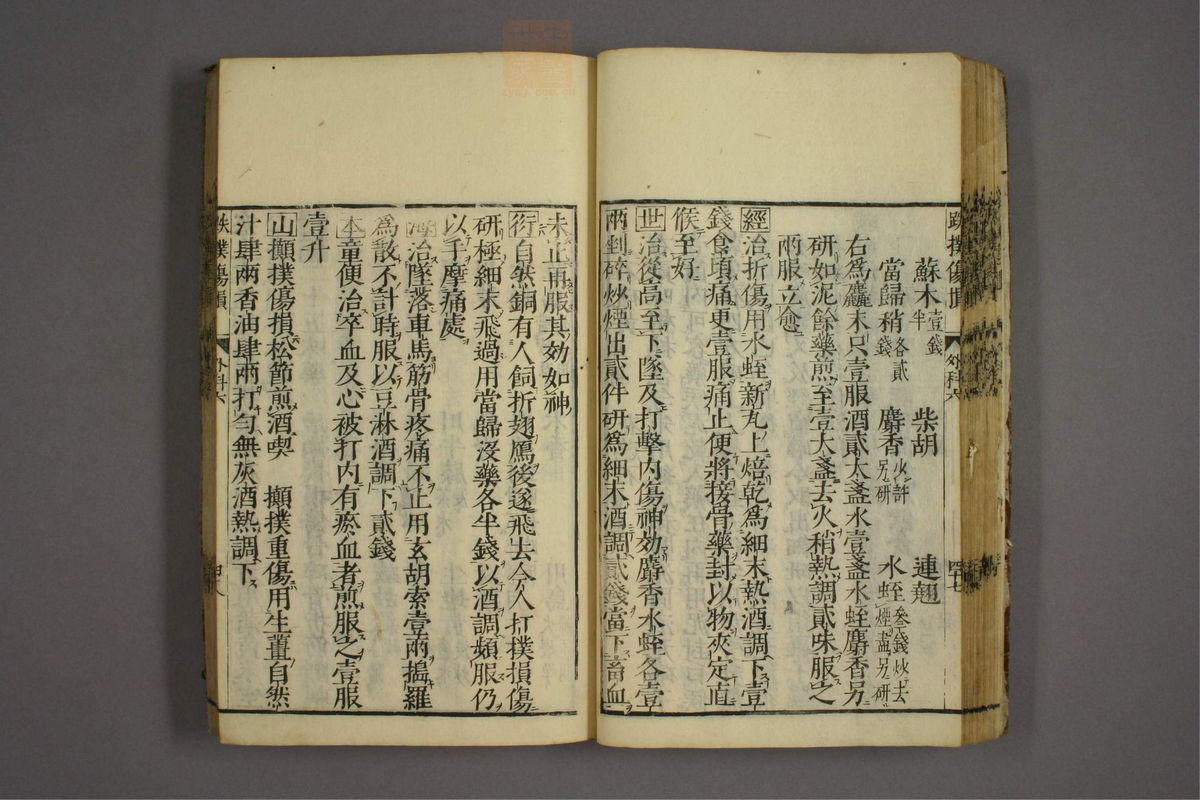 跌撲傷損 外科六 四七
蘇木壹錢半 柴胡 連翹
當歸稍各貳錢 麝香少許另研 水蛭叁錢炒去煙盡另研
右為麤末只壹服酒貳大盞水壹盞水蛭麝香另
研如泥餘藥煎至壹大盞去火稍熱調貳味服之
兩服立愈
經治折傷用水蛭新瓦上焙乾為細末熱酒調下壹
錢食頃痛更壹服痛止便將接骨藥封以物夾定直
候至好
世治從高至下墜及打擊內傷神効麝香水蛭各壹
兩剉碎炒煙出貳件研為細末酒調貳錢當下畜血
未止再服其効如神
衍自然銅有人飼折翅鴈後遂飛去今人打撲損傷
研極細末飛過用當歸沒藥各半錢以酒調頻服仍
以手摩痛處
治墜落車馬筋骨疼痛不止用玄胡索壹兩搗羅
為散不計時服以豆淋酒調下貳錢
本童便治卒血及心被打內有瘀血者煎服之壹服
壹升
山攧撲傷損松節煎酒喫 攧撲重傷用生薑自然
汁肆兩香油肆兩打勻無灰酒熱調下
跌撲傷損 外科六 四八